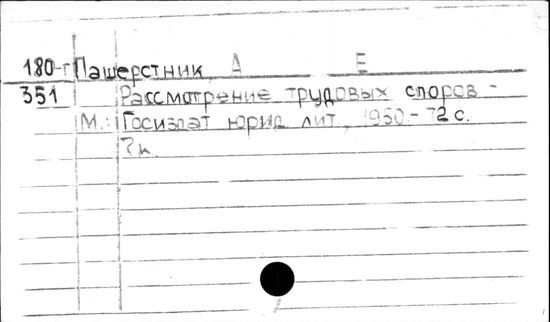 180-г Пашерстник, А Е
351 Рассмотрение трудовых споров -
М.: Госиздат юрид лит, 1950.- 72 с.